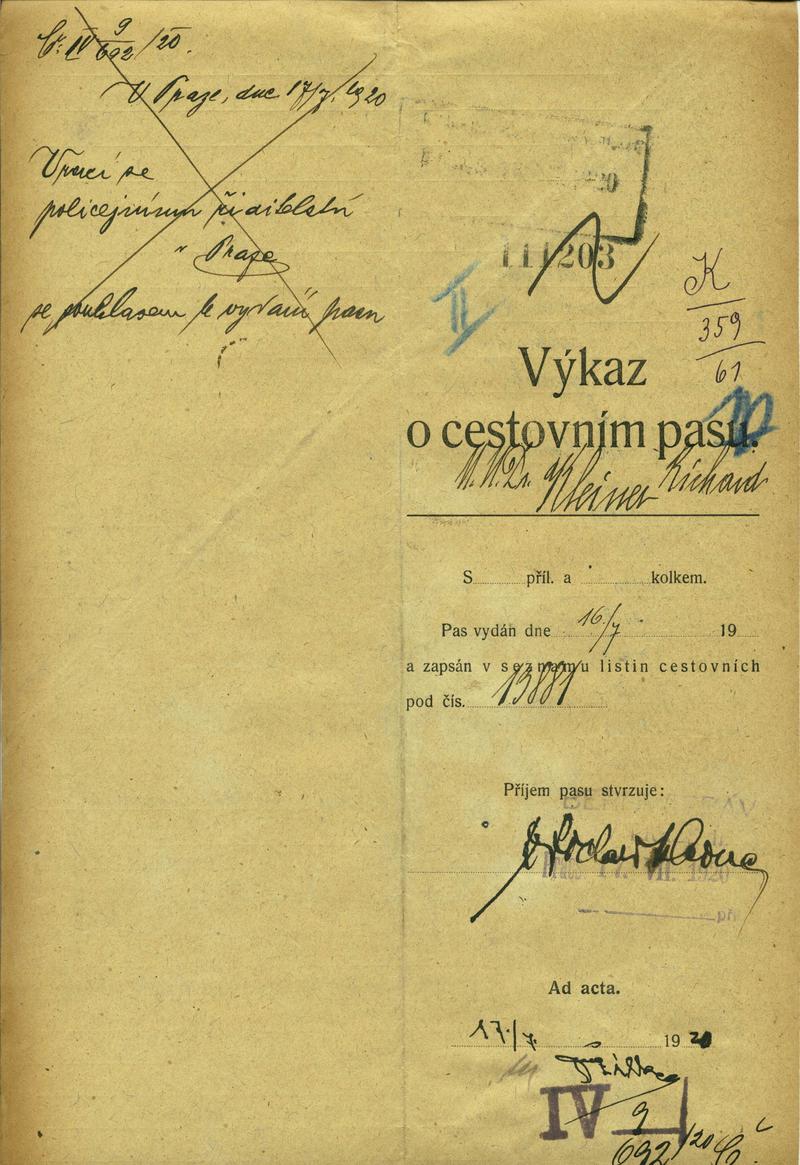 Čs. IV 9/692 /20.
V Praze, dne 17/7. 1920
Vrací se
policejnímu ředitelství
v Praze
se souhlasem k vydání pasu
111203
II
K
359
61
Výkaz
o cestovním pasu.
Kleiner Richard
S příl. a kolkem.
Pas vydán dne 16/7 19
a zapsán v seznamu listin cestovních
pod čís. 13881
Příjem pasu stvrzuje:
17. VII. 1920
Ad acta.
17./7. 1920
IV 9
692/20